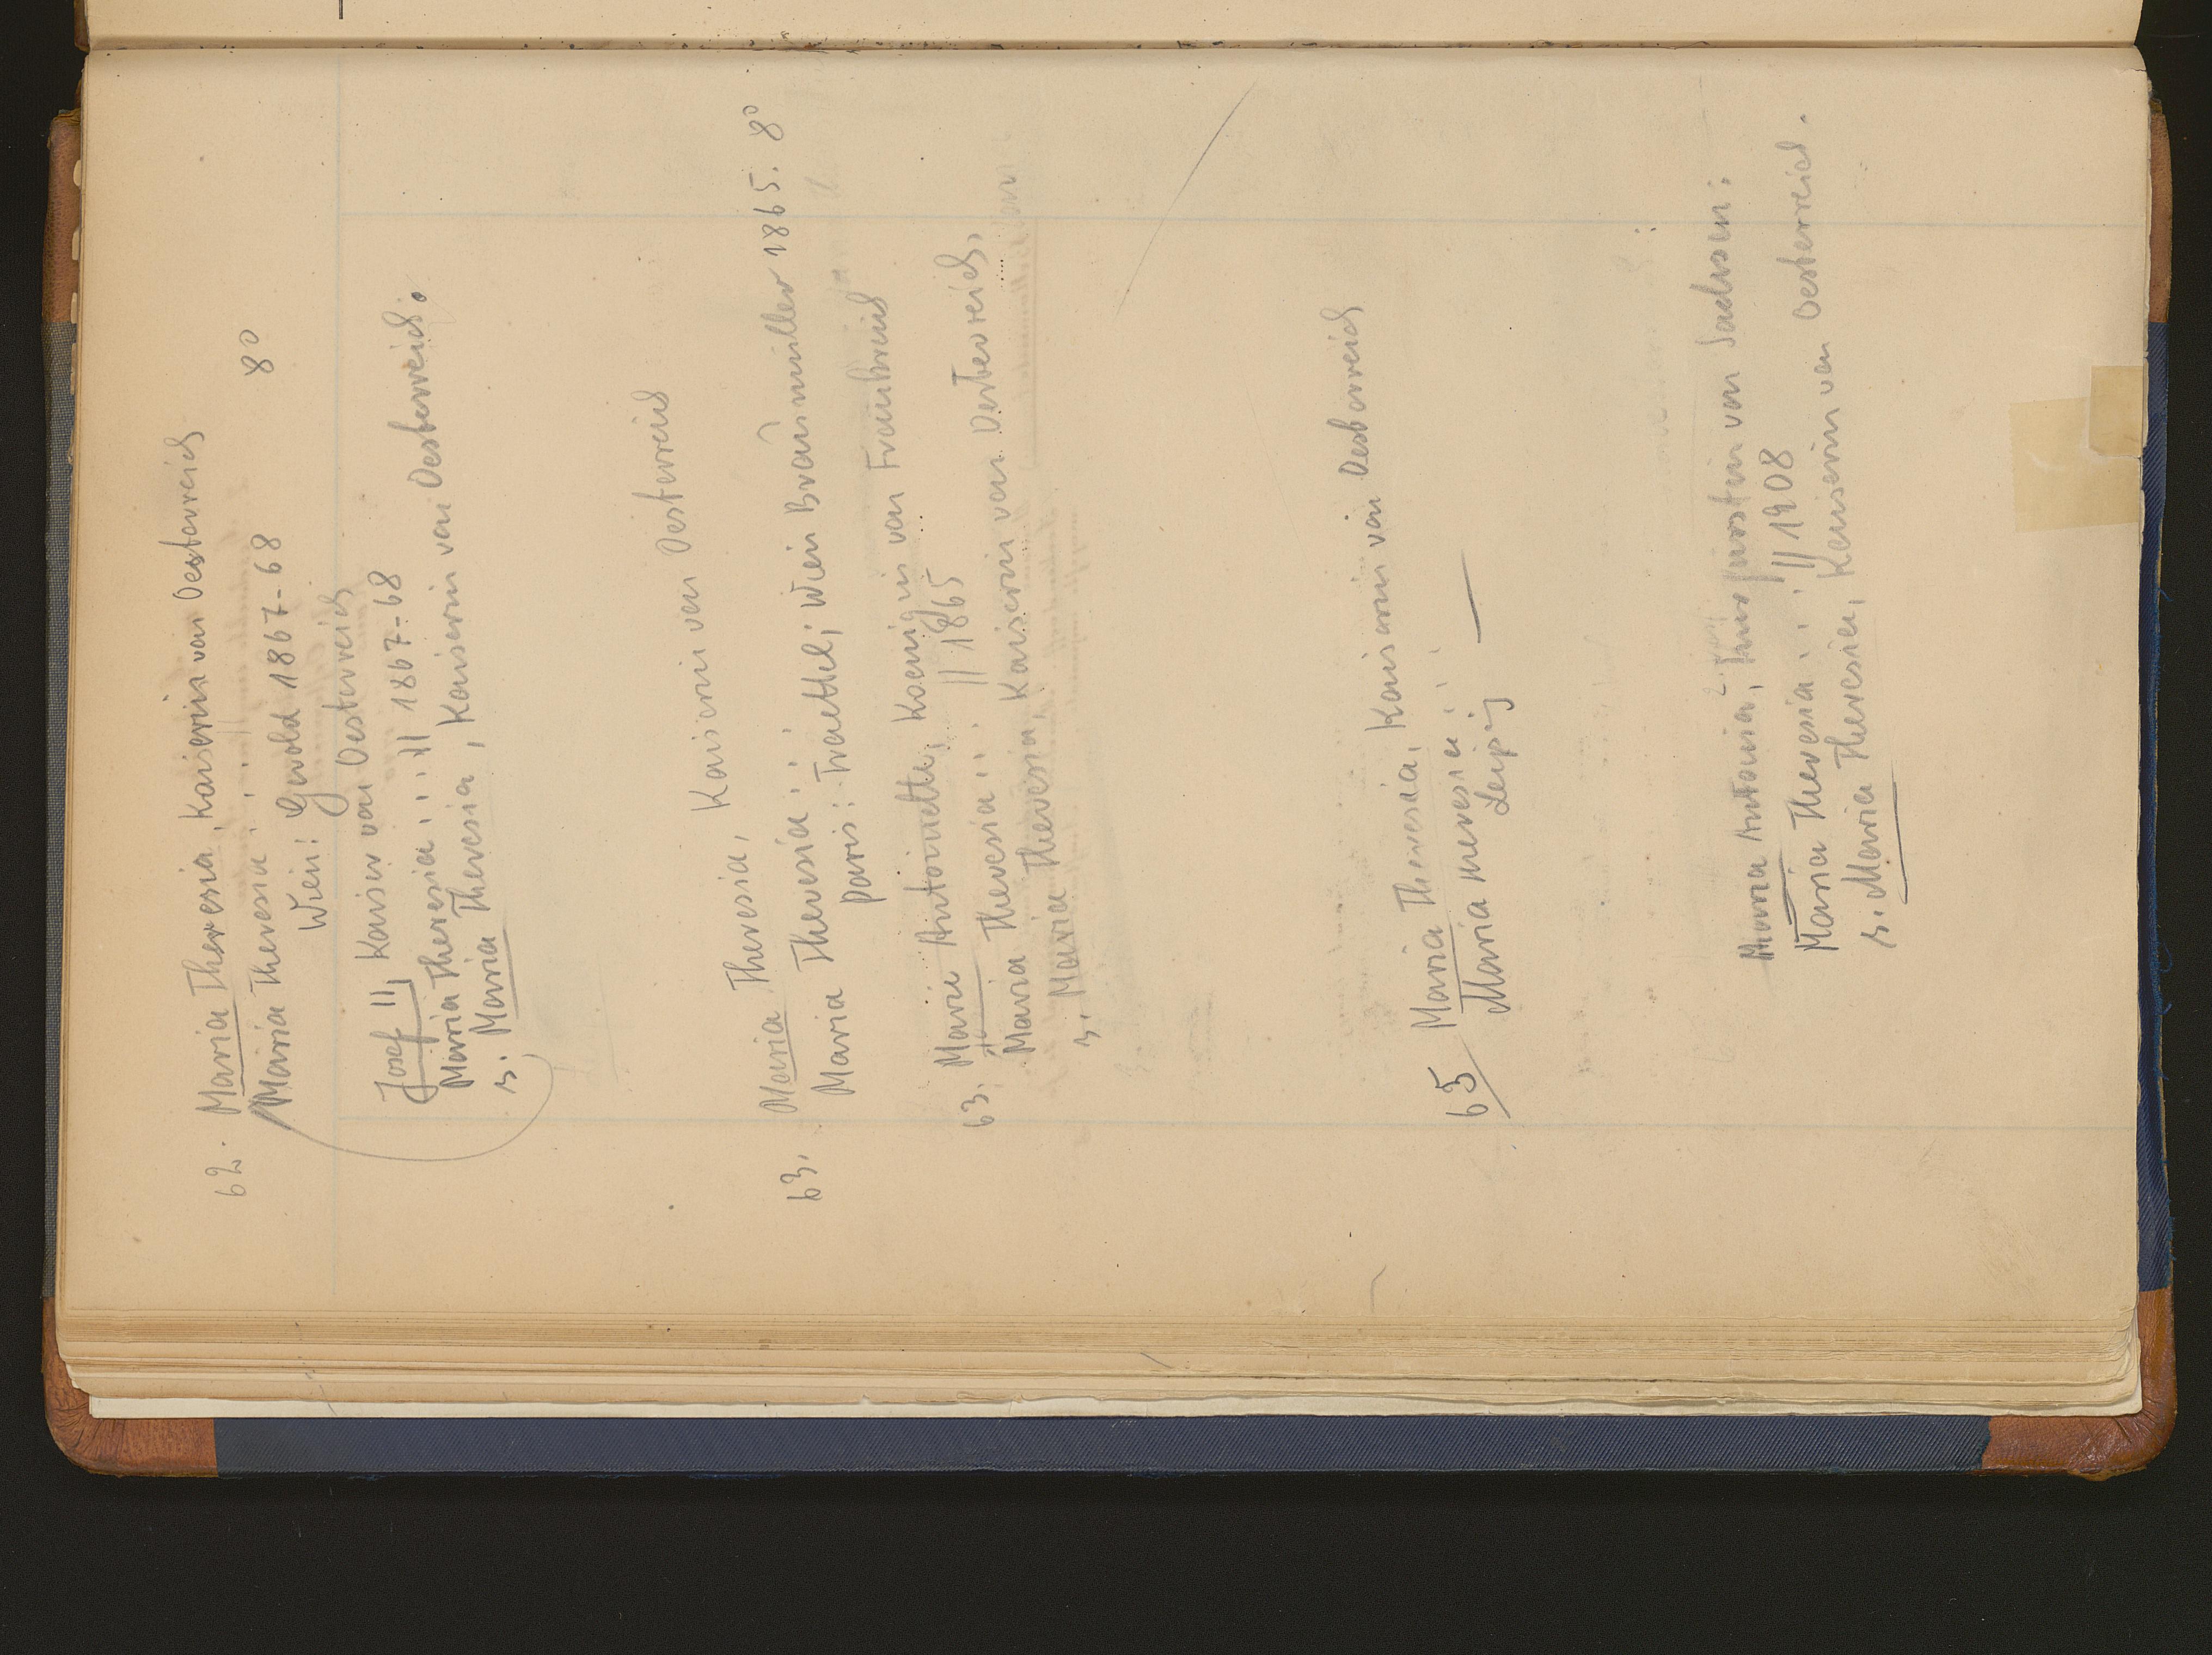 62. Maria Theresia, Kaiserin von Oesterreich
Maria Theresia . . . // 8°
Wien: Gerold 1867-68
Josef II, Kaiser von Oesterreich
Maria Theresia . . . // 1867-68
s. Maria Theresia, Kaiserin von Oesterreich.
Kaiserin von Oesterreich
63. Maria Theresia,
Maria Theresia . . .
Paris: Traettel; Wien Braumüller 1865. 8°
63. Marie Antoinette, Koenigin von Frankreich
Maria Theresia . . . // 1865
s. Maria Theresia, Kaiserin von Oesterreich.
65 Maria Theresia, Kaiserin von Oesterreich
Maria Theresia . . .
Leipzig —
Maria Antonia, Kurfürstin von Sachsen:
Maria Theresia . . . // 1908
s. Maria Theresia, Kaiserin von Oesterreich.